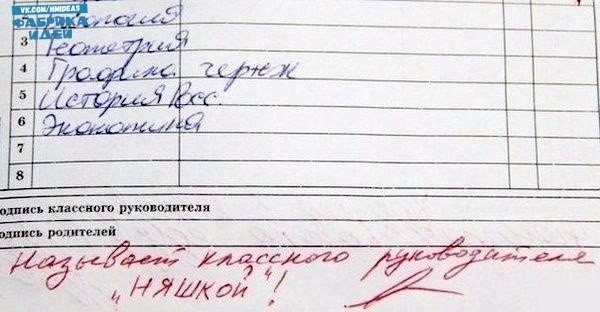 VK.COM/HMIDEAS
ФАБРИКА
ИДЕЙ
3 Геометрия
4 Графика черж
5 История Росс.
6 Экономика
7
8
одпись классного руководителя
одпись родителей
Называет классного руководителя
„НЯШКОЙ"!